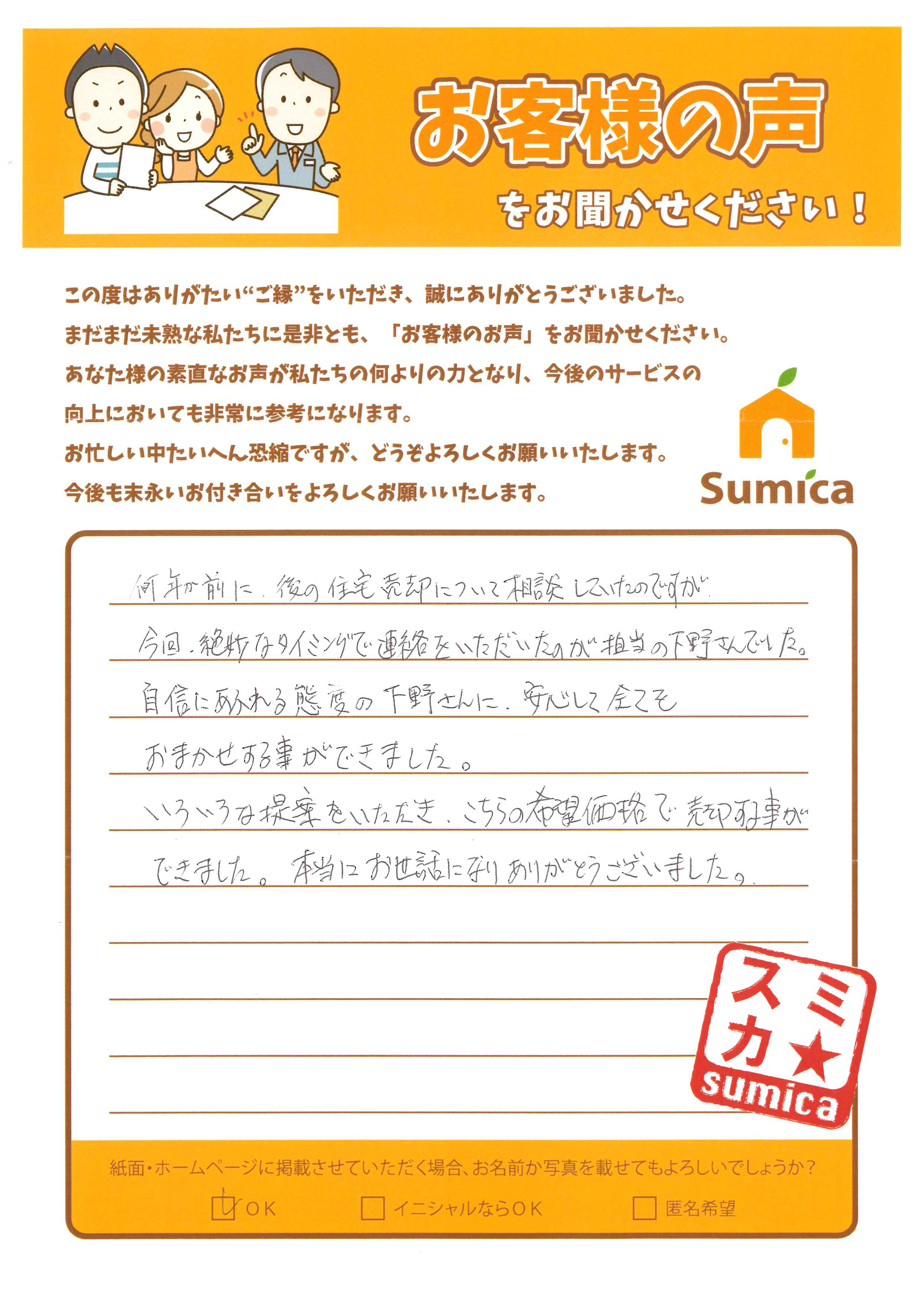 お客様の声
をお聞かせください！
この度はありがたい“ご縁”をいただき、誠にありがとうございました。
まだまだ未熟な私たちに是非とも、「お客様のお声」をお聞かせください。
あなた様の素直なお声が私たちの何よりの力となり、今後のサービスの
向上においても非常に参考になります。
お忙しい中たいへん恐縮ですが、どうぞよろしくお願いいたします。
今後も末永いお付き合いをよろしくお願いいたします。
Sumica
何年か前に、後の住宅売却について相談していたのですが
今回、絶妙なタイミングで連絡をいただいたのが担当の下野さんでした。
自信にあふれる態度の下野さんに、安心して全てを
おまかせする事ができました。
いろいろな提案をいただき、こちらの希望価格で売却する事が
できました。本当にお世話になりありがとうございました。
スミ
カ★
sumica
紙面・ホームページに掲載させていただく場合、お名前か写真を載せてもよろしいでしょうか？
OK イニシャルならOK 匿名希望